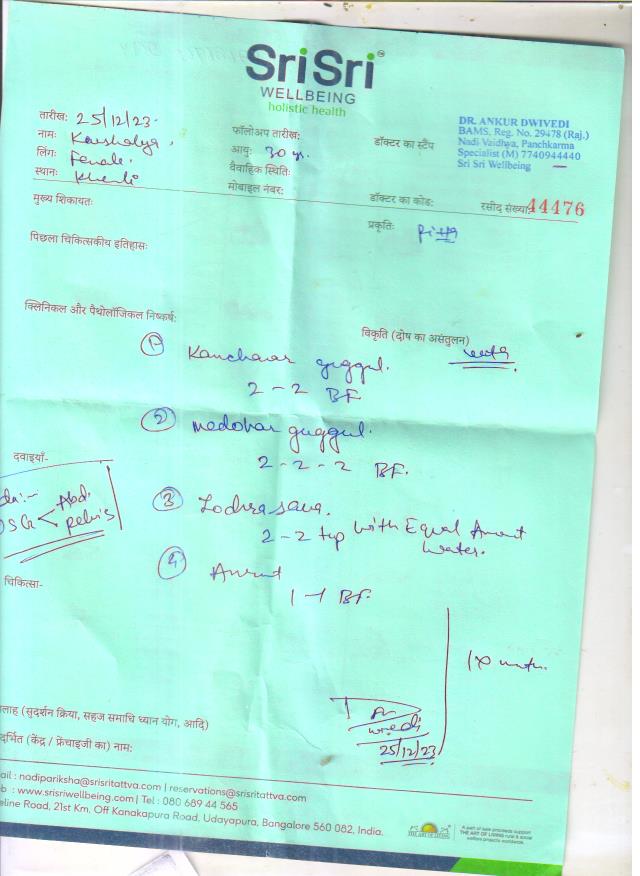 Sri Sri
WELLBEING
holistic health
तारीख: 25/12/23.
नामः Kaushalya,
लिंगः Female.
स्थानः
फॉलोअप तारीखः
आयुः 30 yr.
वैवाहिक स्थितिः
मोबाइल नंबरः
डॉक्टर का स्टैंप
DR. ANKUR DWIVEDI
BAMS, Reg. No. 29478 (Raj.)
Nadi Vaidhya, Panchkarma
Specialist (M) 7740944440
Sri Sri Wellbeing
डॉक्टर का कोडः
रसीद संख्याः 44476
मुख्य शिकायतः
प्रकृतिः Pitta
पिछला चिकित्सकीय इतिहासः
क्लिनिकल और पैथोलॉजिकल निष्कर्षः
विकृति (दोष का असंतुलन)
① Kanchanar guggul.
2 - 2 BF
② medohar guggul.
2 - 2 - 2 BF.
दवाइयाँ-
Adv:-
USG < Abd.
pelvis
③ Lodhrasava.
2 - 2 tsp with Equal Amount
water.
④ Amrut
1 - 1 BF.
चिकित्सा-
1 x month.
लाह (सुदर्शन क्रिया, सहज समाधि ध्यान योग, आदि)
दर्भित (केंद्र / फ्रेंचाइजी का) नामः
25/12/23
ail : nadipariksha@srisritattva.com | reservations@srisritattva.com
b : www.srisriwellbeing.com | Tel : 080 689 44 565
eline Road, 21st Km, Off Kanakapura Road, Udayapura, Bangalore 560 082, India.
THE ART OF LIVING
A part of sale proceeds support
THE ART OF LIVING rural & social
welfare projects worldwide.